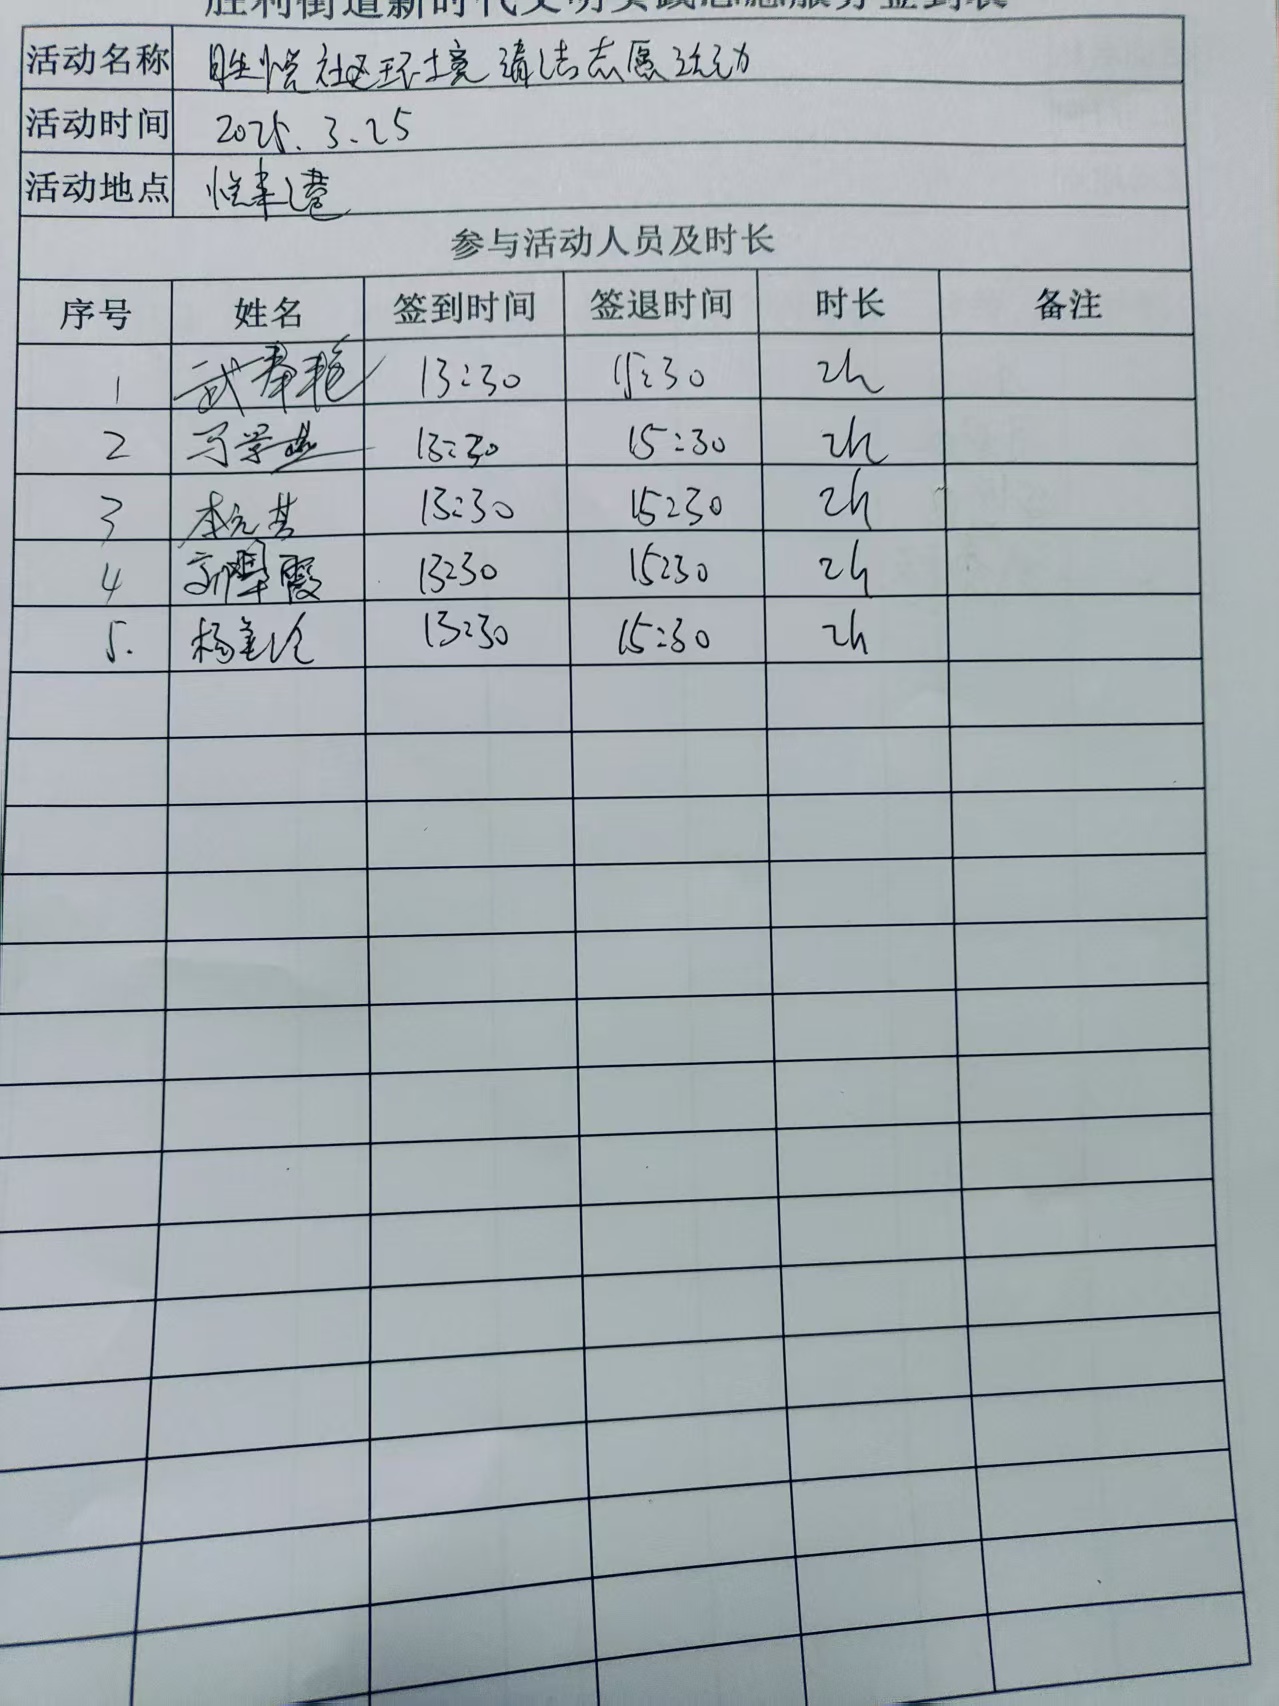 胜利街道新时代文明实践志愿服务签到表
活动名称 胜悦社区环境清洁志愿活动
活动时间 2025.3.25
活动地点 悦来港
参与活动人员及时长
序号 姓名 签到时间 签退时间 时长 备注
1 武春艳 13:30 15:30 2h
2 13:30 15:30 2h
3 李元芸 13:30 15:30 2h
4 刘翠霞 13:30 15:30 2h
5. 杨 13:30 15:30 2h